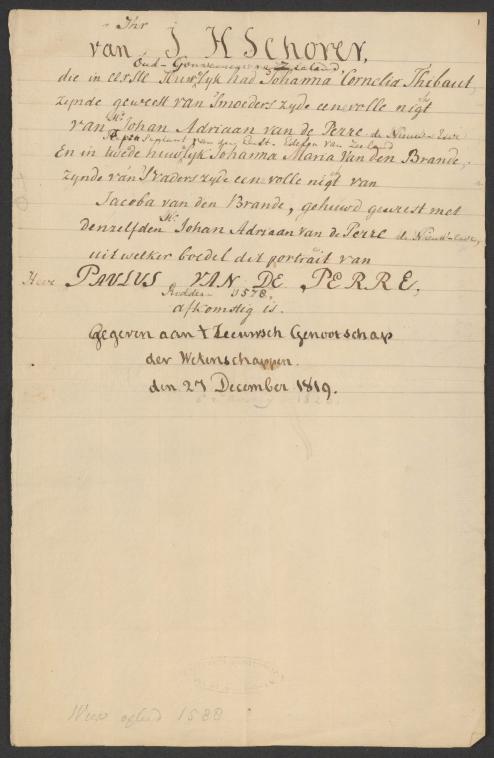 1
Jhr
van J H Schorer,
Oud-Gouverneur van Zeeland
die in eerste Huwlyk had Johanna Cornelia Thibaut,
zynde geweest van 'Smoeders zyde een volle nigt
van Mr. Johan Adriaan van de Perre de Nieuw-
van den van Zeeland
En in twede huwlyk Johanna Maria Van den Brande,
zynde van 'Svaders zyde een volle nigt van
Jacoba van den Brande, gehuwd geweest met
denzelfden Mr. Johan Adriaan van de Perre de Nieuw-
uit welker boedel dit portrait van
Heer PAULUS VAN DE PERRE,
Ridder 1578,
afkomstig is.
Gegeven aan 't Zeeuwsch Genootschap
der Wetenschappen.
den 27 December 1819.
1588